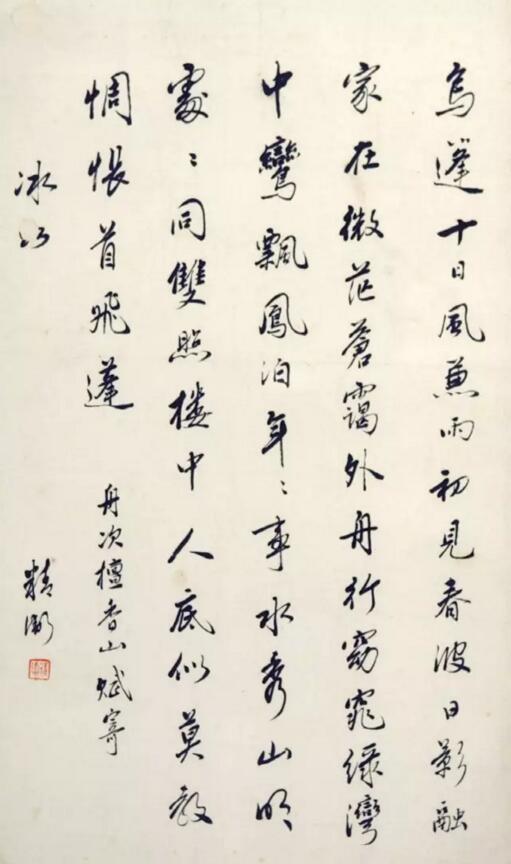 烏篷十日風兼雨初見春波日影融
家在微茫蒼靄外舟行窈窕綠灣
中鸞飄鳳泊年〻事水秀山明
處〻同雙照楼中人底似莫教
惆悵首飛蓬 舟次檀香山賦寄
冰如 精衛